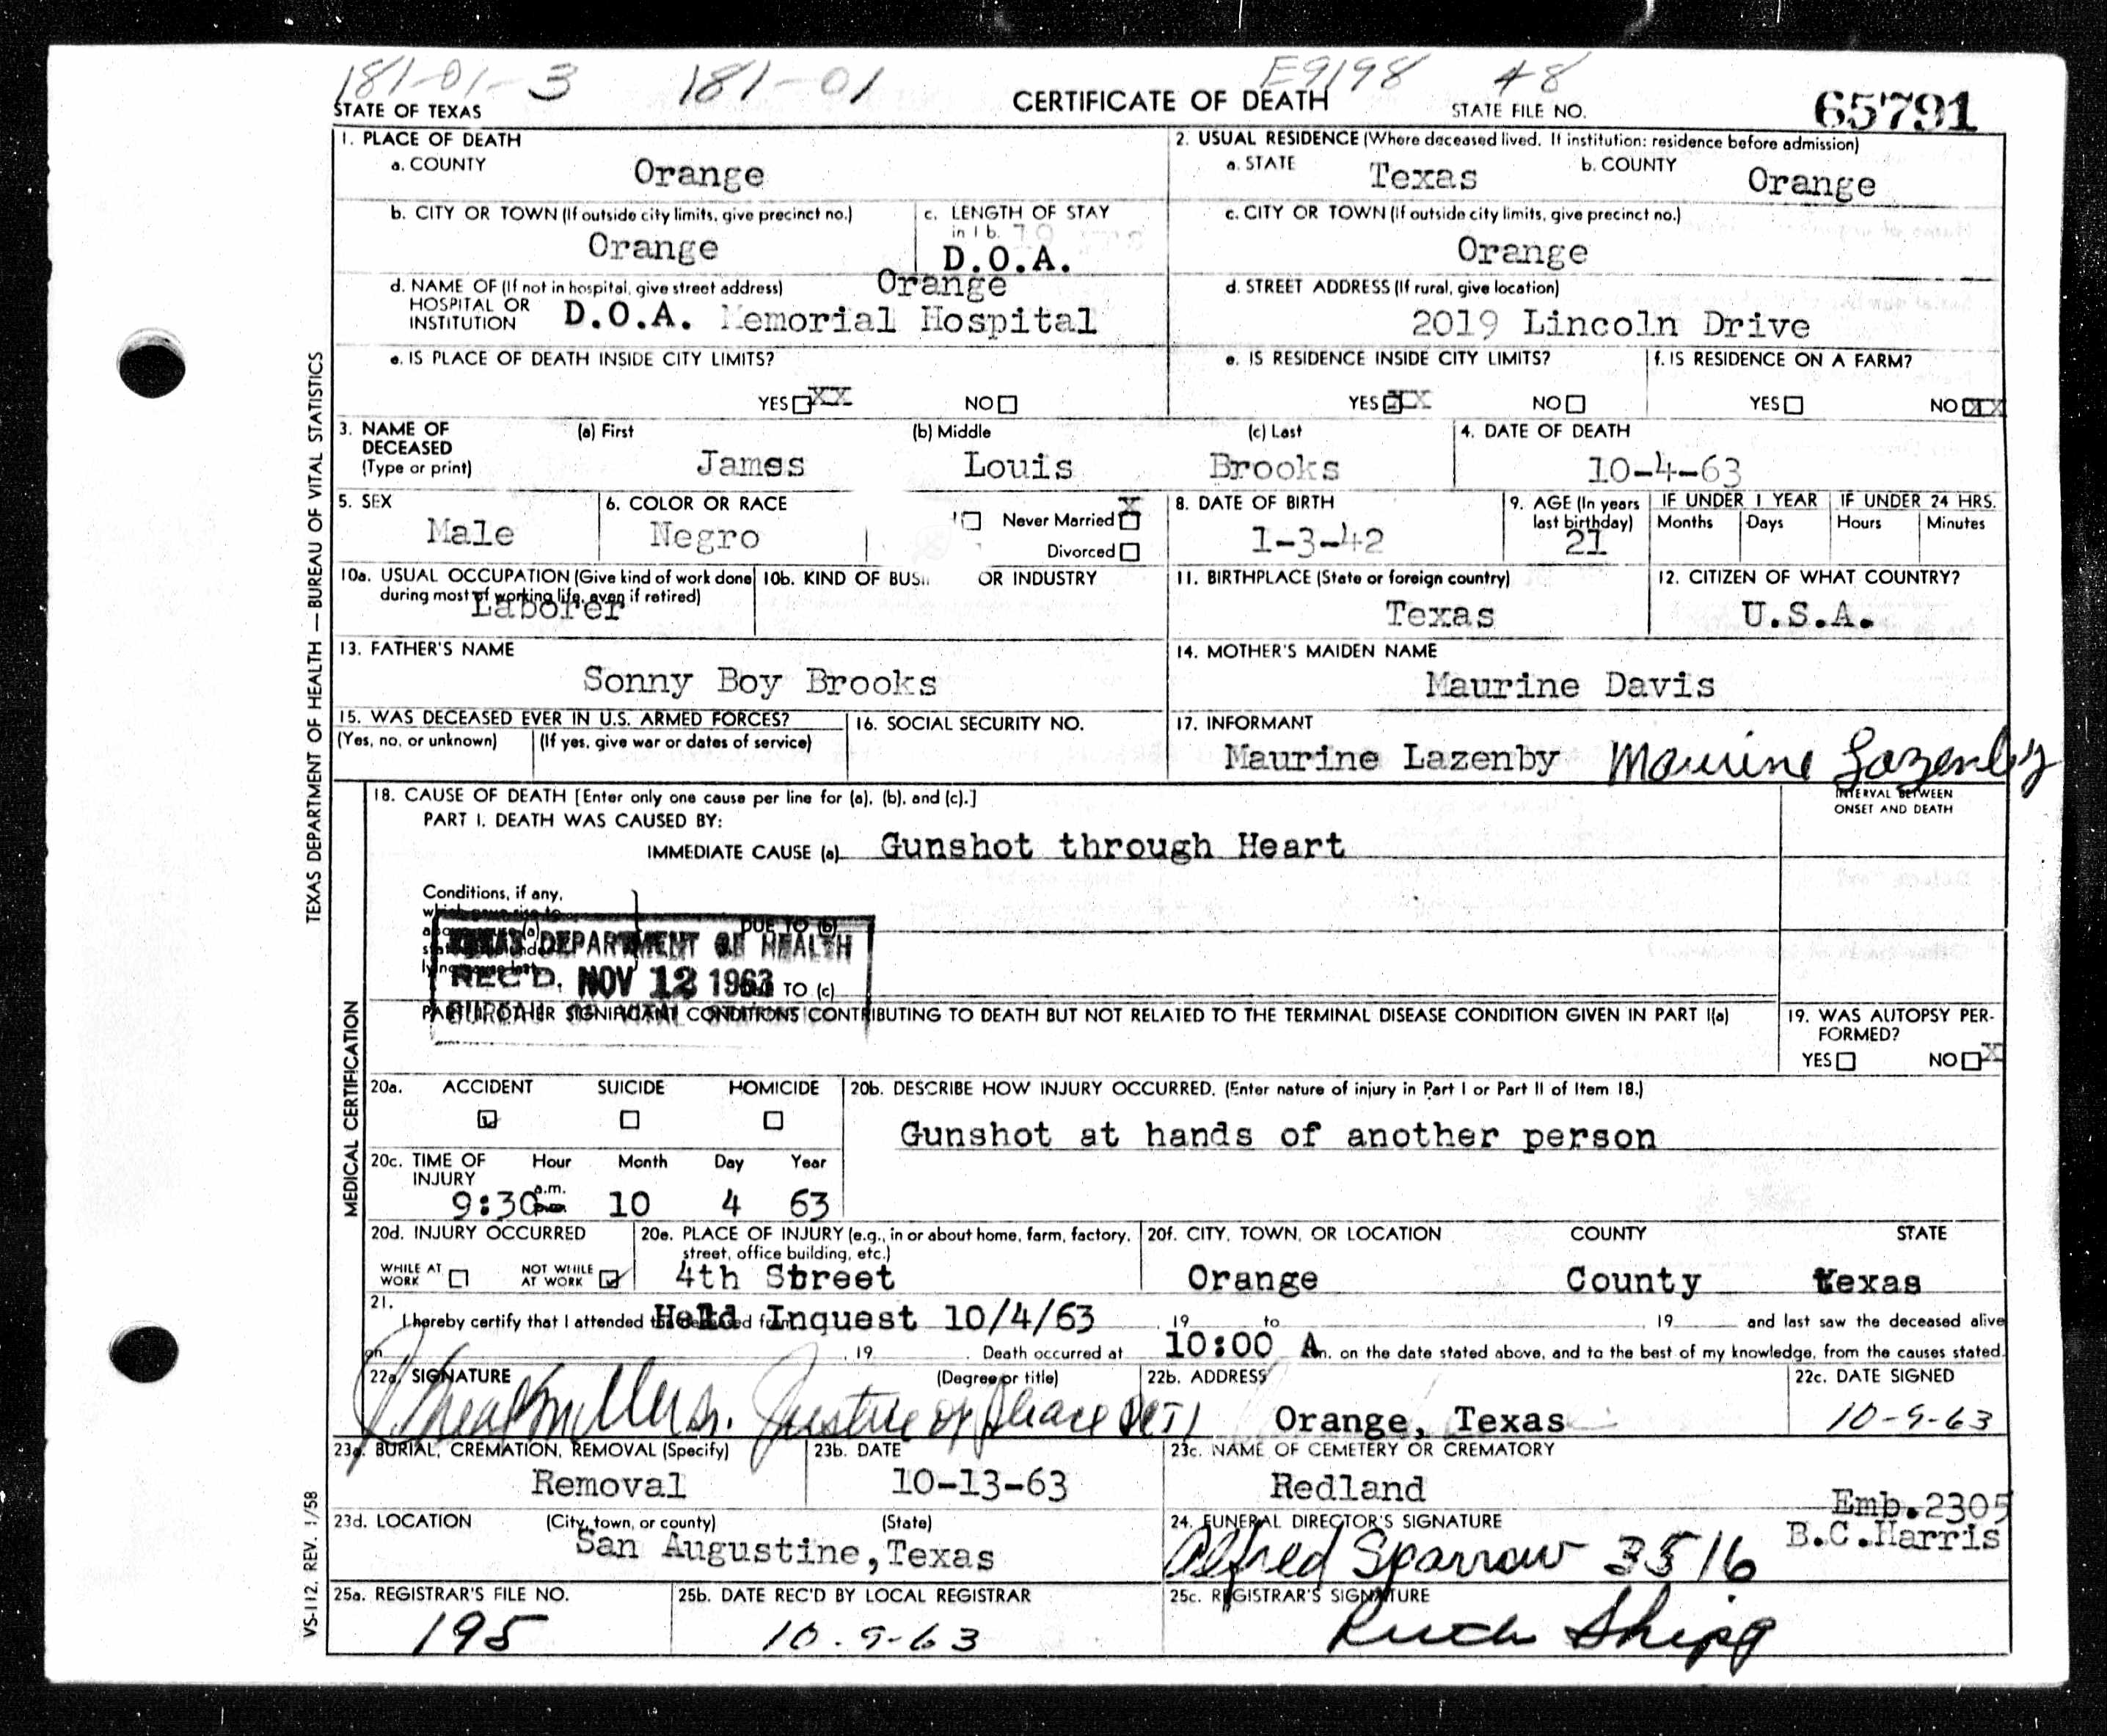 181-01-3 181-01 E9198 48
STATE OF TEXAS CERTIFICATE OF DEATH STATE FILE NO. 65791
1. PLACE OF DEATH
a. COUNTY Orange
2. USUAL RESIDENCE (Where deceased lived. If institution: residence before admission)
a. STATE Texas b. COUNTY Orange
b. CITY OR TOWN (If outside city limits, give precinct no.) Orange
c. LENGTH OF STAY in 1 b. D.O.A.
c. CITY OR TOWN (If outside city limits, give precinct no.) Orange
d. NAME OF (If not in hospital, give street address) Orange
HOSPITAL OR
INSTITUTION D.O.A. Memorial Hospital
d. STREET ADDRESS (If rural, give location)
2019 Lincoln Drive
e. IS PLACE OF DEATH INSIDE CITY LIMITS?
YES XX NO
e. IS RESIDENCE INSIDE CITY LIMITS?
YES XX NO
f. IS RESIDENCE ON A FARM?
YES NO XX
3. NAME OF DECEASED (Type or print)
(a) First (b) Middle (c) Last
James Louis Brooks
4. DATE OF DEATH
10-4-63
5. SEX
Male
6. COLOR OR RACE
Negro
Never Married X
Divorced
8. DATE OF BIRTH
1-3-42
9. AGE (In years last birthday)
21
IF UNDER 1 YEAR
Months Days
IF UNDER 24 HRS.
Hours Minutes
10a. USUAL OCCUPATION (Give kind of work done during most of working life, even if retired)
Laborer
10b. KIND OF BUSI OR INDUSTRY
11. BIRTHPLACE (State or foreign country)
Texas
12. CITIZEN OF WHAT COUNTRY?
U.S.A.
13. FATHER'S NAME
Sonny Boy Brooks
14. MOTHER'S MAIDEN NAME
Maurine Davis
15. WAS DECEASED EVER IN U.S. ARMED FORCES?
(Yes, no, or unknown) (If yes, give war or dates of service)
16. SOCIAL SECURITY NO.
17. INFORMANT
Maurine Lazenby Maurine Lazenby
18. CAUSE OF DEATH [Enter only one cause per line for (a), (b), and (c).]
INTERVAL BETWEEN
ONSET AND DEATH
PART I. DEATH WAS CAUSED BY:
IMMEDIATE CAUSE (a) Gunshot through Heart
Conditions, if any,
DUE TO (b)
TEXAS DEPARTMENT OF HEALTH
REC'D. NOV 12 1963
TO (c)
PART II. OTHER SIGNIFICANT CONDITIONS CONTRIBUTING TO DEATH BUT NOT RELATED TO THE TERMINAL DISEASE CONDITION GIVEN IN PART I(a)
19. WAS AUTOPSY PER-
FORMED?
YES NO X
20a. ACCIDENT SUICIDE HOMICIDE
20b. DESCRIBE HOW INJURY OCCURRED. (Enter nature of injury in Part I or Part II of Item 18.)
Gunshot at hands of another person
20c. TIME OF INJURY Hour Month Day Year
9:30 a.m. 10 4 63
20d. INJURY OCCURRED
WHILE AT WORK NOT WHILE AT WORK
20e. PLACE OF INJURY (e.g., in or about home, farm, factory, street, office building, etc.)
4th Street
20f. CITY, TOWN, OR LOCATION COUNTY STATE
Orange County texas
21.
I hereby certify that I attended the deceased from Held Inquest 10/4/63, 19 to , 19 and last saw the deceased alive
on , 19 . Death occurred at 10:00 A m. on the date stated above, and to the best of my knowledge, from the causes stated.
22a. SIGNATURE (Degree or title)
Justice of Peace
22b. ADDRESS
Orange, Texas
22c. DATE SIGNED
10-9-63
23a. BURIAL, CREMATION, REMOVAL (Specify)
Removal
23b. DATE
10-13-63
23c. NAME OF CEMETERY OR CREMATORY
Redland
Emb.2305
B.C.Harris
23d. LOCATION (City, town, or county) (State)
San Augustine, Texas
24. FUNERAL DIRECTOR'S SIGNATURE
Alfred Sparrow 3516
25a. REGISTRAR'S FILE NO.
195
25b. DATE REC'D BY LOCAL REGISTRAR
10-9-63
25c. REGISTRAR'S SIGNATURE
Ruth Shipp
TEXAS DEPARTMENT OF HEALTH — BUREAU OF VITAL STATISTICS
MEDICAL CERTIFICATION
VS-112. REV. 1/58